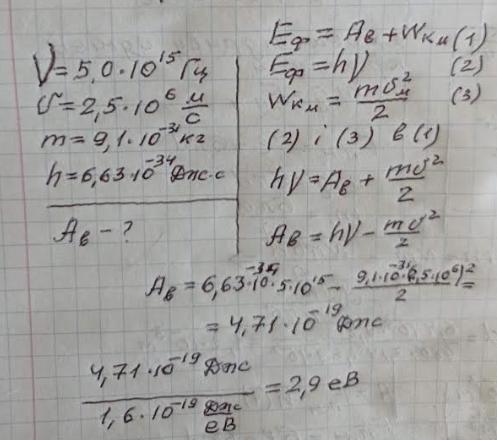 ν = 5,0·10¹⁵ Гц
υ = 2,5·10⁶ м/с
m = 9,1·10⁻³¹ кг
h = 6,63·10⁻³⁴ Дж·с
Aв - ?
Eф = Aв + Wкм (1)
Eф = hν (2)
Wкм = mυм²/2 (3)
(2) і (3) в (1)
hν = Aв + mυ²/2
Aв = hν - mυ²/2
Aв = 6,63·10⁻³⁴·5·10¹⁵ - 9,1·10⁻³¹·(2,5·10⁶)²/2 =
= 4,71·10⁻¹⁹ Дж
4,71·10⁻¹⁹ Дж / 1,6·10⁻¹⁹ Дж/еВ = 2,9 еВ